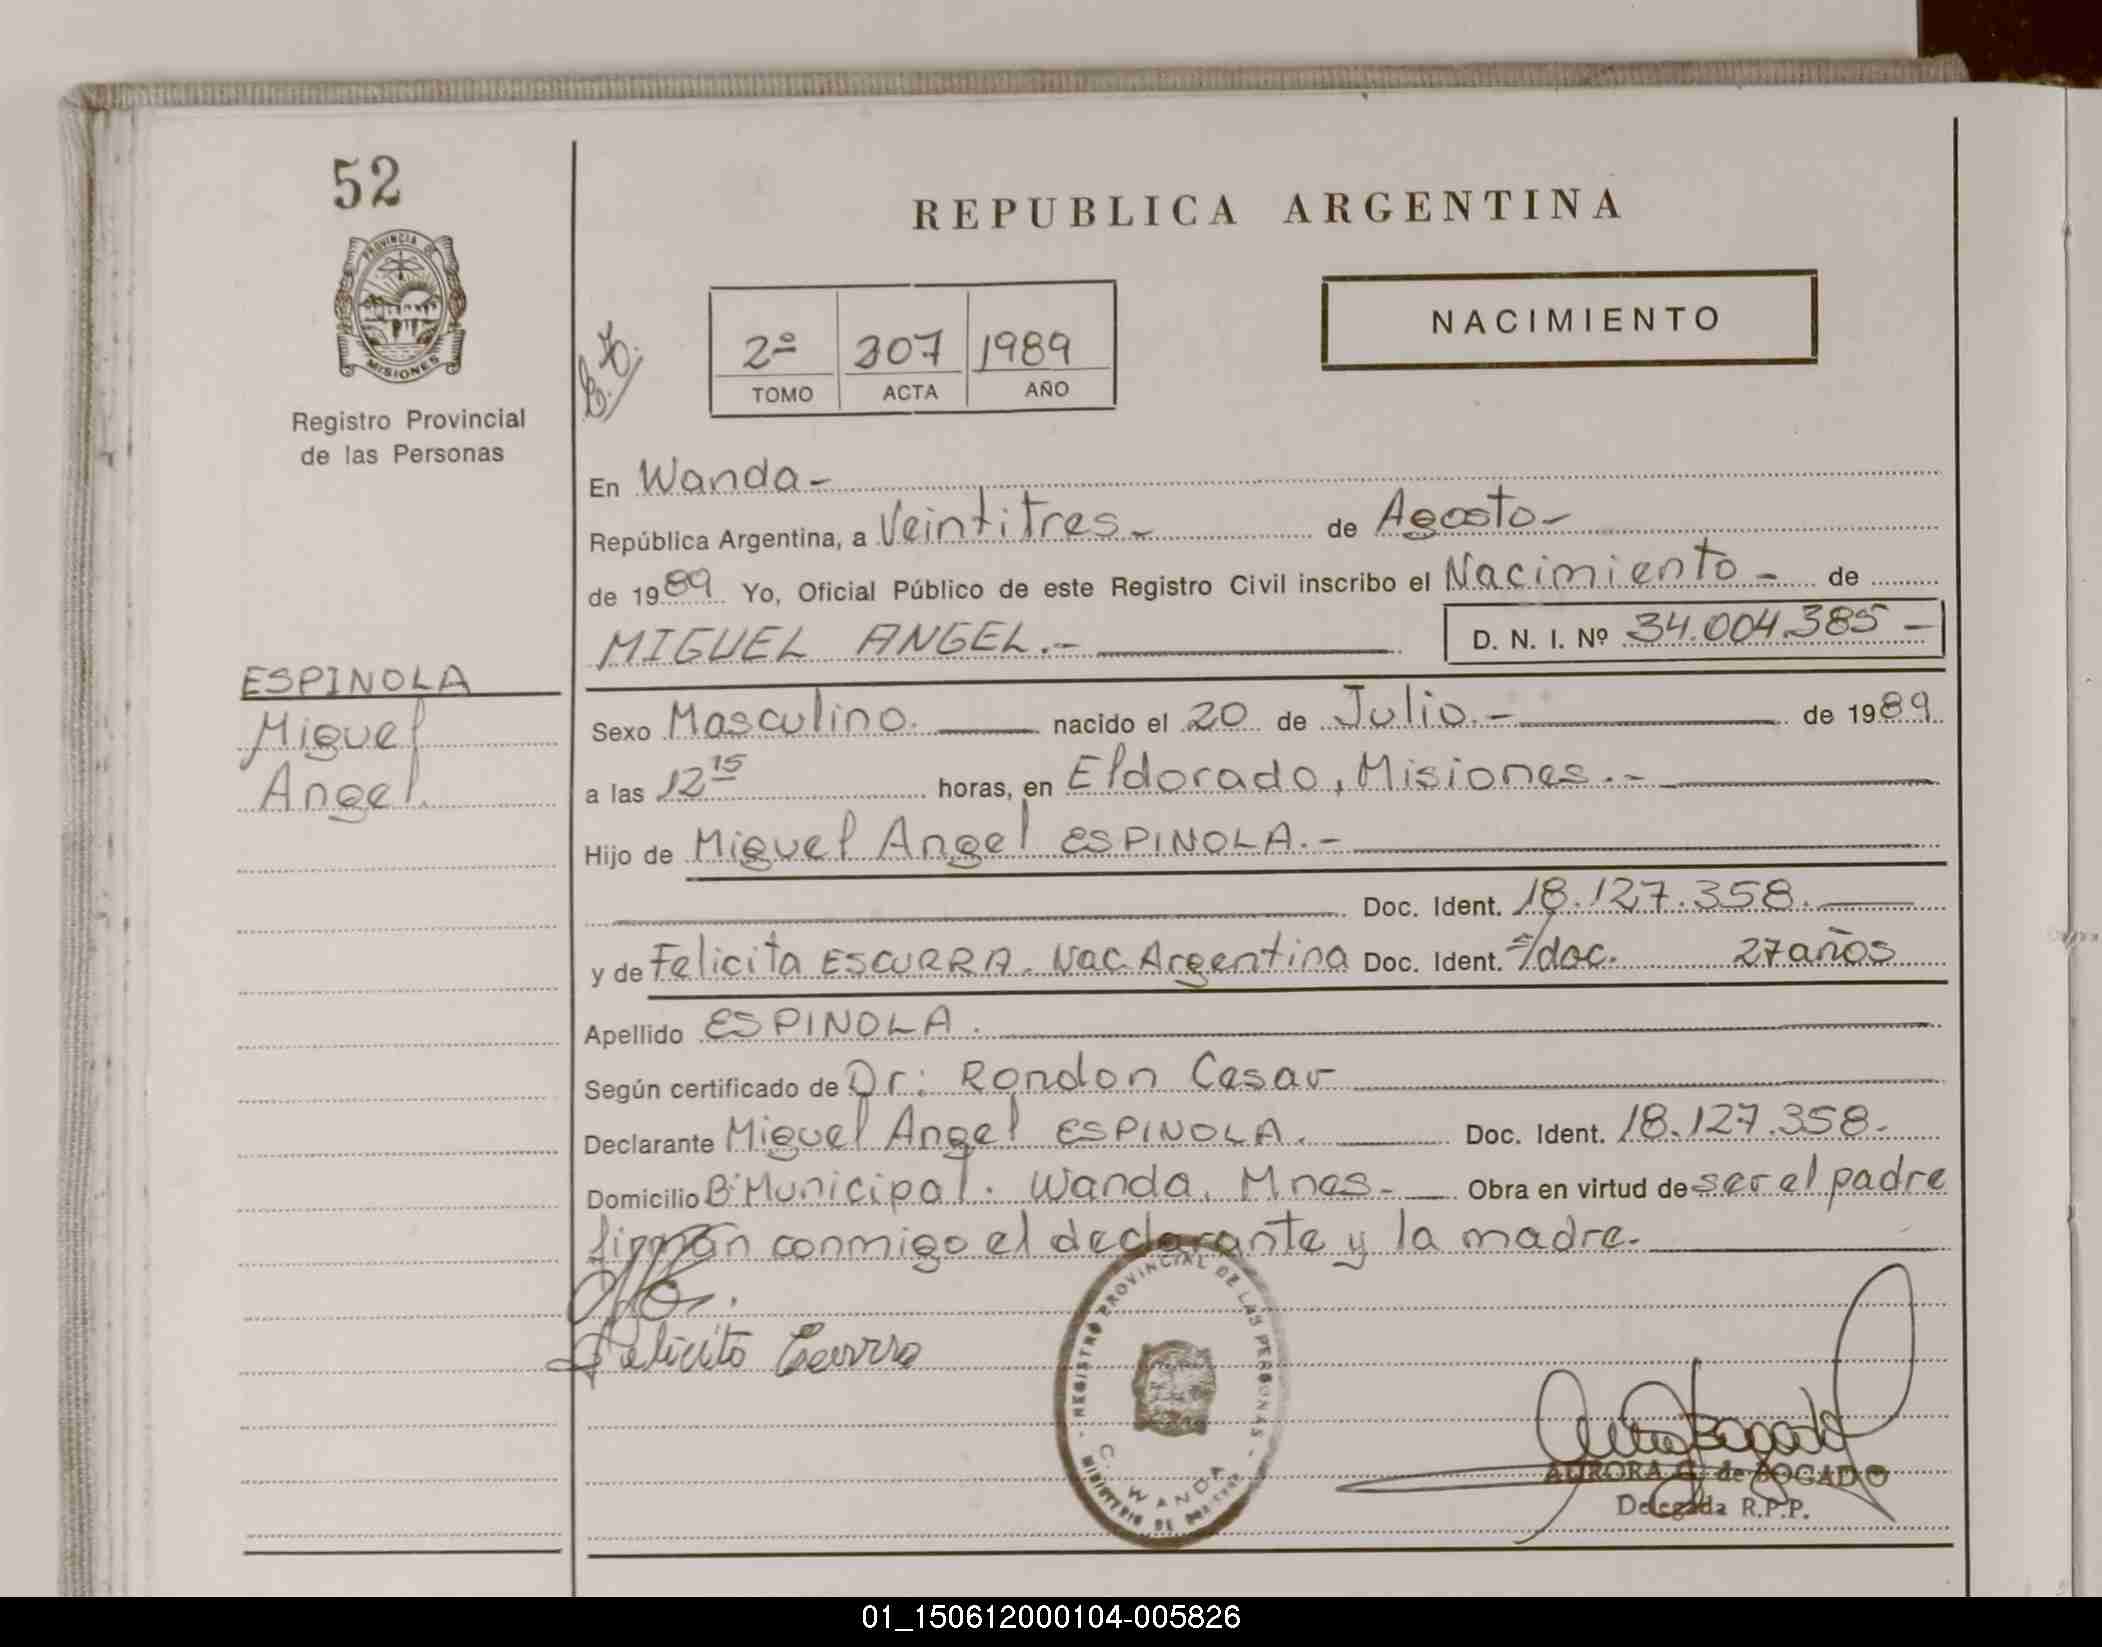 52
PROVINCIA DE
MISIONES
Registro Provincial
de las Personas
REPUBLICA ARGENTINA
2º 307 1989
TOMO ACTA AÑO
NACIMIENTO
En Wanda-
República Argentina, a Veintitres- de Agosto-
de 1989 Yo, Oficial Público de este Registro Civil inscribo el Nacimiento - de
MIGUEL ANGEL.- D. N. I. Nº 34.004.385-
ESPINOLA
Miguel
Angel.
Sexo Masculino. nacido el 20 de Julio.- de 1989
a las 12 15 horas, en Eldorado, Misiones.-
Hijo de Miguel Angel ESPINOLA.-
Doc. Ident. 18.127.358.
y de Felicita ESCURRA. Nac. Argentina Doc. Ident. s/doc. 27 años
Apellido ESPINOLA.
Según certificado de Dr: Rondon Cesar
Declarante Miguel Angel ESPINOLA. Doc. Ident. 18.127.358.
Domicilio Bº Municipal. Wanda. Mnes. Obra en virtud de ser el padre
firman conmigo el declarante y la madre.
REGISTRO PROVINCIAL DE LAS PERSONAS
WANDA
MINISTERIO DE
AURORA G. de BOGADO
Delegada R.P.P.
01_150612000104-005826